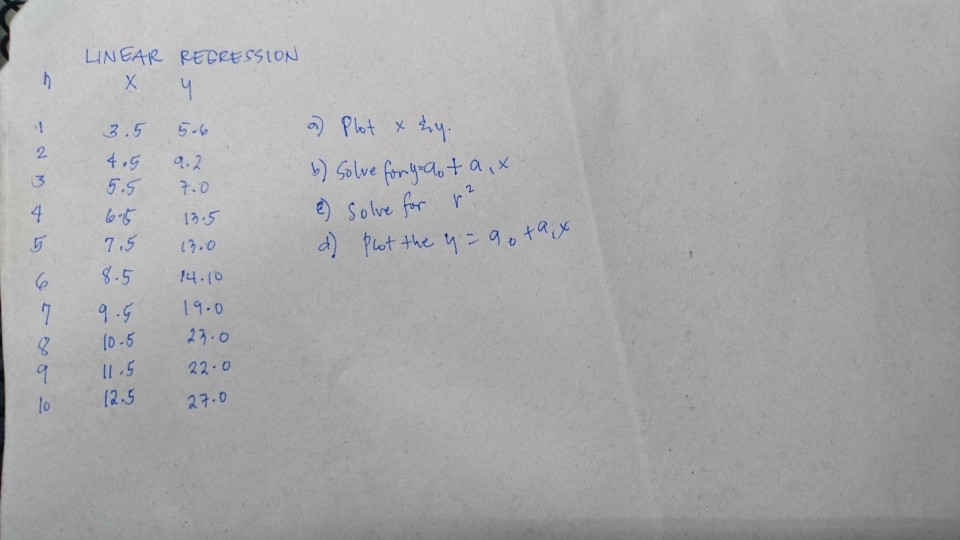 LINEAR REGRESSION
n x y
1 3.5 5.6
2 4.5 9.2
3 5.5 7.0
4 6.5 13.5
5 7.5 13.0
6 8.5 14.10
7 9.5 19.0
8 10.5 23.0
9 11.5 22.0
10 12.5 27.0
a) Plot x & y.
b) Solve for y=a₀ + a₁x
c) Solve for r²
d) Plot the y = a₀ + a₁x